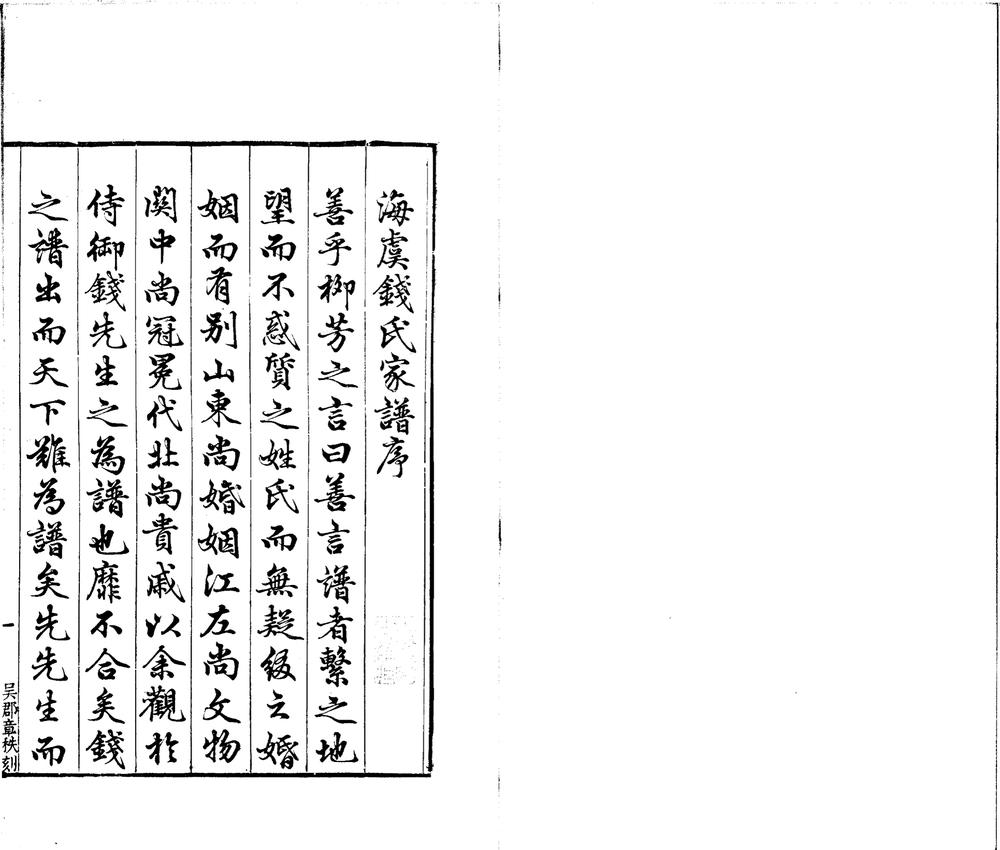 海虞錢氏家譜序
善乎柳芳之言曰善言譜者繫之地
望而不惑質之姓氏而無疑綴之婚
姻而有别山東尚婚姻江左尚文物
関中尚冠冕代北尚貴戚以余觀於
侍御錢先生之為譜也靡不合矣錢
之譜出而天下難為譜矣先先生而
一
吴郡章秩刻